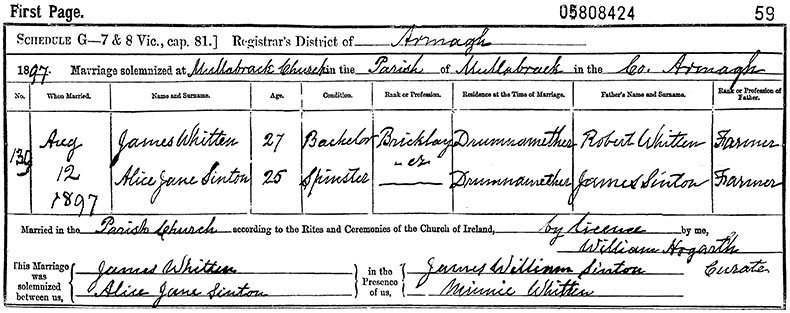 First Page. 05808424 59
SCHEDULE G—7 & 8 Vic., cap. 81.] Registrar's District of Armagh
1897. Marriage solemnized at Mullabrack Church in the Parish of Mullabrack in the Co. Armagh
No. When Married. Name and Surname. Age. Condition. Rank or Profession. Residence at the Time of Marriage. Father's Name and Surname. Rank or Profession of Father.
139 Aug 12 1897
James Whitten 27 Bachelor Bricklay-er Drumnamether Robert Whitten Farmer
Alice Jane Sinton 25 Spinster Drumnamether James Sinton Farmer
Married in the Parish Church according to the Rites and Ceremonies of the Church of Ireland, by licence by me,
William Hogarth
Curate
This Marriage was solemnized between us, James Whitten
Alice Jane Sinton
in the Presence of us, James William Sinton
Minnie Whitten